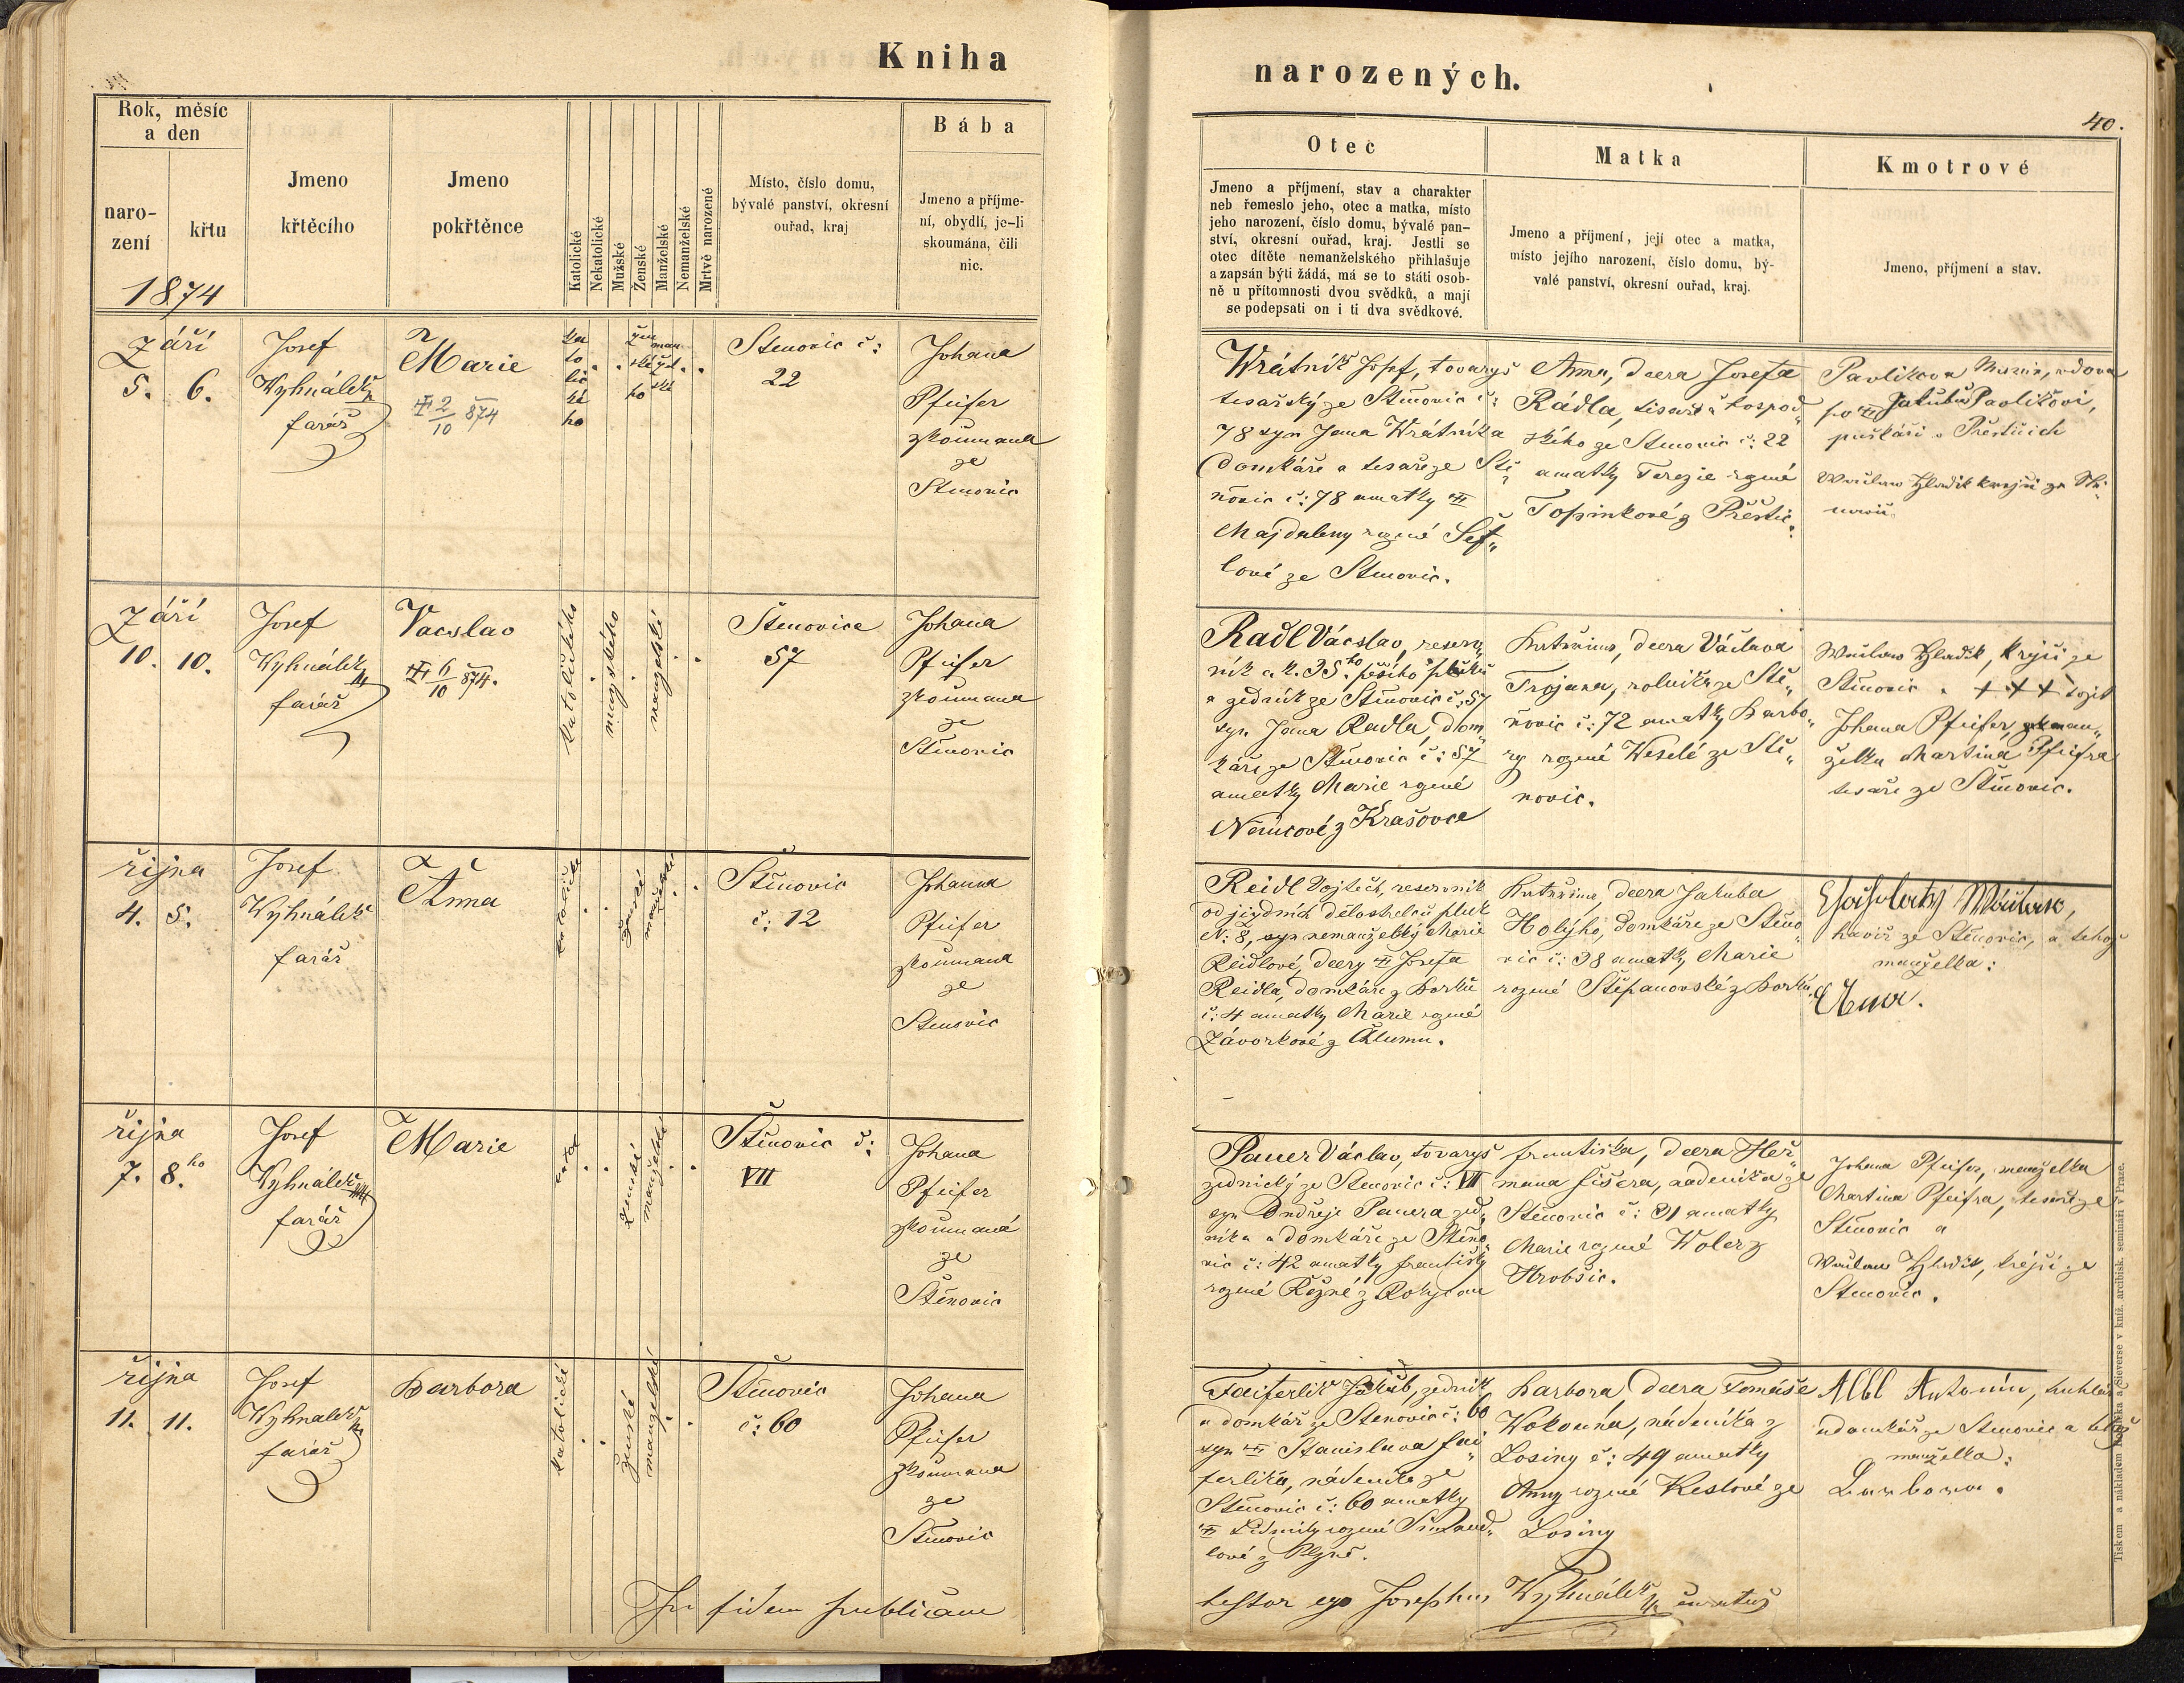 Kniha
narozených.
40.
Rok, měsíc
a den
naro-
zení
křtu
1874
Jmeno
křtěcího
Jmeno
pokřtěnce
Katolické
Nekatolické
Mužské
Ženské
Manželské
Nemanželské
Mrtvě narozené
Místo, číslo domu,
bývalé panství, okresní
ouřad, kraj
Bába
Jmeno a příjme-
ní, obydlí, je-li
skoumána, čili
nic.
Otec
Jmeno a příjmení, stav a charakter
neb řemeslo jeho, otec a matka, místo
jeho narození, číslo domu, bývalé pan-
ství, okresní ouřad, kraj. Jestli se
otec dítěte nemanželského přihlašuje
a zapsán býti žádá, má se to státi osob-
ně u přítomnosti dvou svědků, a mají
se podepsati on i ti dva svědkové.
Matka
Jmeno a příjmení, její otec a matka,
místo jejího narození, číslo domu, bý-
valé panství, okresní ouřad, kraj.
Kmotrové
Jmeno, příjmení a stav.
Září
5. 6.
Josef
Vyhnálek
farář
Marie
2/10 874
ka
to
lic
ké
ho
Stenovic č:
22
Johana
Pfeifer
zkoumana
ze
Stenovic
Wrátník Josef, tovaryš
tesařský ze Stěnovic č:
78 syn Jana Wrátníka
domkáře a tesaře ze Stě
novic č: 78 a matky
Majdaleny rozené Šef„
lové ze Stenovic.
Anna, dcera Josefa
Rádla, tesaře a hospod„
ského ze Stenovic č: 22
a matky Terezie rozené
Topinkové z Přeštic.
Pavlikova Marie, vdova
po Jakubu Pavlikovi,
puškáři v Přešticích
Wáclav Hladik krejči ze Stě„
novic
Září
10. 10.
Josef
Vyhnálek
farář
Vacslav
6/10 874.
katolického
mužského
manželské
Stenovice
57
Johana
Pfeifer
zkoumana
ze
Stěnovic
Radl Václav, reserv„
ník c. k. 35ho pěšího pluku
a zedník ze Stěnovic č: 57
syn Jana Radla, dom„
káře ze Stěnovic č: 57
a matky Marie rozené
Němcové z Krašovce
Kateřina, dcera Václava
Trojana, rolníka ze Stě„
novic č: 72 a matky Barbo„
ry rozené Weselé ze Stě„
novic.
Wáclav Hladik, krejčí ze
Stěnovic. + + + totiž
Johana Pfeifer, man„
želka Martina Pfeifra
tesaře ze Stěnovic.
října
4. 5.
Josef
Vyhnálek
farář
Anna
katolické
ženské
manželské
Stěnovic
č: 12
Johanna
Pfeifer
zkoumana
ze
Stenovic
Reidl Vojtěch, reservník
od jízdních dělostřelců pluk
N: 8, syn nemanželský Marie
Reidlové, dcery Josefa
Reidla, domkáře z Borku
č: 4 a matky Marie rozené
Závorkové z Chlumu.
Kateřina, dcera Jakuba
Holýho, domkáře ze Stěno„
vic č: 38 a matky Marie
rozené Štěpanovské z Borku.
Wáclav,
havíř ze Stěnovic, a tehož
manželka:
Anna.
října
7. 8.ho
Josef
Vyhnálek
farář
Marie
ženské
manželské
Stěnovic č:
VII
Johana
Pfeifer
zkoumaná
ze
Stěnovic
Pauer Václav, tovaryš
zednický ze Stenovic č: VII
syn Ondřeje Pauera zed„
níka a domkáře ze Stěno„
vic č: 42 a matky Františky
rozené Řežné z Rokycan
Františka, dcera Heř„
mana Fišera, nádeníka ze
Stěnovic č: 31 a matky
Marie rozené Woler z
Hrobšic.
Johana Pfeifer, manželka
Martina Pfeifra, tesaře ze
Stěnovic a
Wáclav Hladik, krejčí ze
Stenovic.
října
11. 11.
Josef
Vyhnalek
farář
Barbora
katolické
ženské
manželské
Stěnovic
č: 60
Johana
Pfeifer
zkoumana
ze
Stěnovic
Faiferlik Jakub, zedník
a domkář ze Stenovic č: 60
syn Stanislava Fai„
ferlika, nádeníka ze
Stěnovic č: 60 a matky
Lidmily rozené
lové z Plzně.
Barbora, dcera Tomáše
Wokouna, nádeníka z
Losiny č: 49 a matky
Anny rozené Keslové ze
Losiny
Albl Antonín, truhlář
a domkář ze Stenovic a tehož
manželka:
Barbora.
In fidem publicam
testor ego Josephus Vyhnálek curatus
Tiskem a nákladem Rohlíčka a Sieverse v kníž. arcibisk. semináři v Praze.